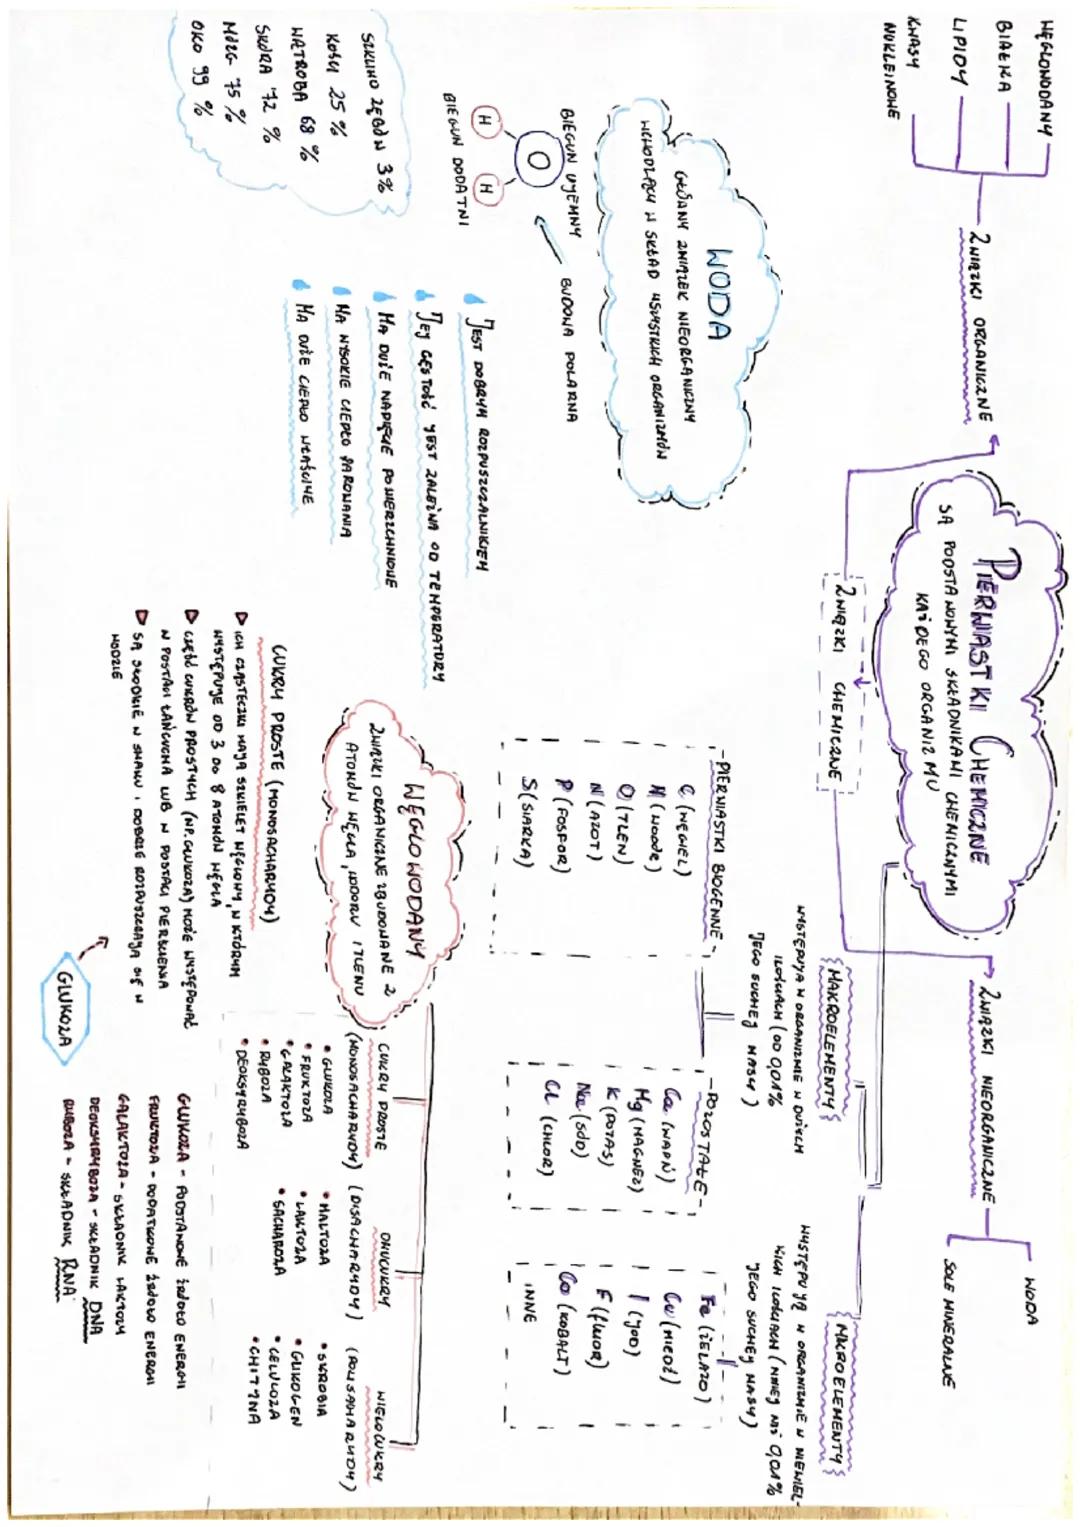 PIERWIASTKI CHEMICZNE
SĄ PODSTAWOWYMI SKŁADNIKAMI CHEMICZNYMI
KAŻDEGO ORGANIZMU
ZWIĄZKI CHEMICZNE
ZWIĄZKI ORGANICZNE
WĘGLOWODANY
BIAŁKA
LIPIDY
KWASY
NUKLEINOWE
ZWIĄZKI NIEORGANICZNE
WODA
SOLE MINERALNE
MAKROELEMENTY
WYSTĘPUJĄ W ORGANIZMIE W DUŻYCH
ILOŚCIACH (OD 0,01%
JEGO SUCHEJ MASY)
MIKROELEMENTY
WYSTĘPUJĄ W ORGANIZMIE W NIEWIEL-
KICH ILOŚCIACH (MNIEJ NIŻ 0,01%
JEGO SUCHEJ MASY)
PIERWIASTKI BIOGENNE
C (WĘGIEL)
H (WODÓR)
O (TLEN)
N (AZOT)
P (FOSFOR)
S (SIARKA)
POZOSTAŁE
Ca (WAPŃ)
Mg (MAGNEZ)
K (POTAS)
Na (SÓD)
Cl (CHLOR)
Fe (ŻELAZO)
Cu (MIEDŹ)
I (JOD)
F (fluOR)
Co (KOBALT)
INNE
WODA
GŁÓWNY ZWIĄZEK NIEORGANICZNY
WCHODZĄCY W SKŁAD WSZYSTKICH ORGANIZMÓW
BIEGUN UJEMNY
BUDOWA POLARNA
O
H H
BIEGUN DODATNI
JEST DOBRYM ROZPUSZCZALNIKIEM
JEJ GĘSTOŚĆ JEST ZALEŻNA OD TEMPERATURY
MA DUŻE NAPIĘCIE POWIERZCHNIOWE
MA WYSOKIE CIEPŁO PAROWANIA
MA DUŻE CIEPŁO WŁAŚCIWE
SZKLIWO ZĘBÓW 3%
KOŚCI 25%
WĄTROBA 68%
SKÓRA 72%
MÓZG 75%
OKO 99%
WĘGLOWODANY
ZWIĄZKI ORGANICZNE ZBUDOWANE Z
ATOMÓW WĘGLA, WODORU I TLENU
CUKRY PROSTE
(MONOSACHARYDY)
GLUKOZA
FRUKTOZA
GALAKTOZA
RYBOZA
DEOKSYRYBOZA
DWUCUKRY
(DISACHARYDY)
MALTOZA
LAKTOZA
SACHAROZA
WIELOCUKRY
(POLISACHARYDY)
SKROBIA
GLIKOGEN
CELULOZA
CHITYNA
CUKRY PROSTE (MONOSACHARYDY)
ICH CZĄSTECZKI MAJĄ SZKIELET WĘGLOWY, W KTÓRYM
WYSTĘPUJE OD 3 DO 8 ATOMÓW WĘGLA
CZĘŚĆ CUKRÓW PROSTYCH (NP. GLUKOZA) MOŻE WYSTĘPOWAĆ
W POSTACI ŁAŃCUCHA LUB W POSTACI PIERŚCIENIA
SĄ SŁODKIE W SMAKU I DOBRZE ROZPUSZCZAJĄ SIĘ W
WODZIE
GLUKOZA
GLUKOZA - PODSTAWOWE ŹRÓDŁO ENERGII
FRUKTOZA - DODATKOWE ŹRÓDŁO ENERGII
GALAKTOZA - SKŁADNIK LAKTOZY
DEOKSYRYBOZA - SKŁADNIK DNA
RYBOZA - SKŁADNIK RNA